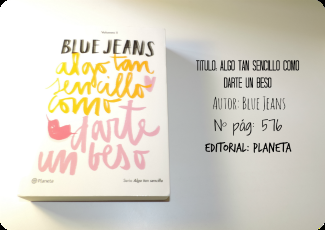 BLUE JEANS
algo tan
sencillo
como
darte
un beso
Planeta
TITULO: ALGO TAN SENCILLO COMO
DARTE UN BESO
AUTOR: BLUE JEANS
Nº pág: 576
EDITORIAL: PLANETA